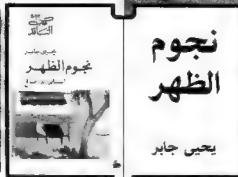 يحيى جابر
نجوم الظهر
نجوم
الظهر
يحيى جابر